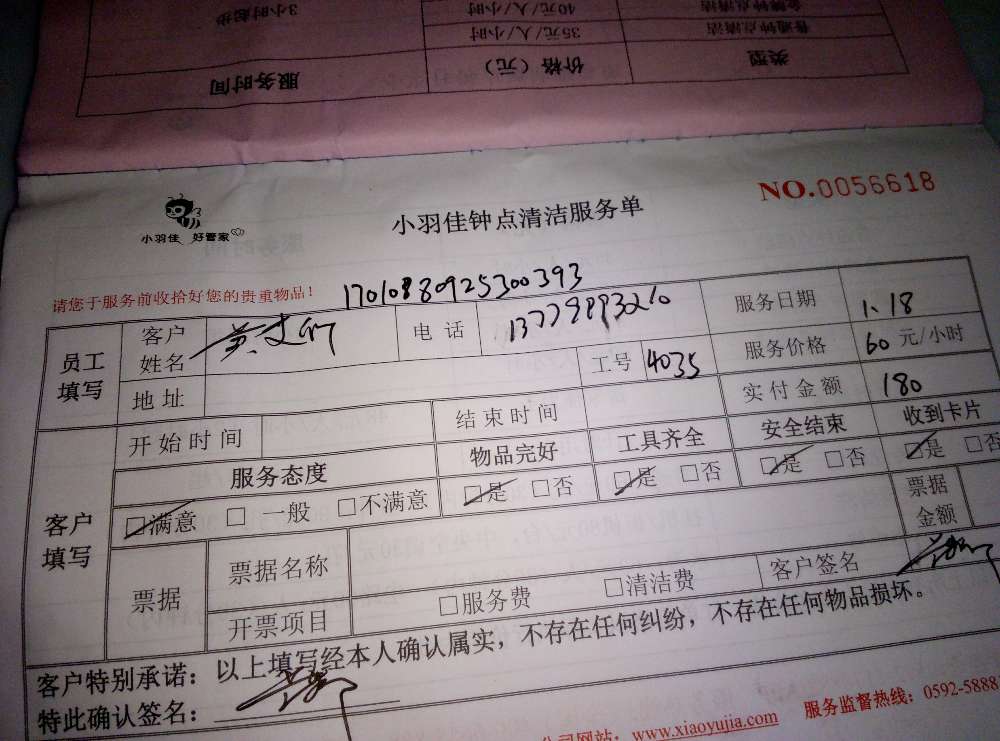 3小时起步
40元/人/小时
金牌钟点清洁
35元/人/小时
普通钟点清洁
服务时间
价格（元）
类型
NO.0056618
小羽佳 好管家
小羽佳钟点清洁服务单
请您于服务前收拾好您的贵重物品！
1701088925300393
员工填写
客户姓名
电话
服务日期 1.18
地址
工号 4035
服务价格 60 元/小时
实付金额 180
客户填写
开始时间
结束时间
服务态度 物品完好 工具齐全 安全结束 收到卡片
□满意 □一般 □不满意 □是 □否 □是 □否 □是 □否 □是 □否
票据
票据名称
票据金额
开票项目 □服务费 □清洁费 客户签名
客户特别承诺：以上填写经本人确认属实，不存在任何纠纷，不存在任何物品损坏。
特此确认签名：
公司网站：www.xiaoyujia.com 服务监督热线：0592-5888